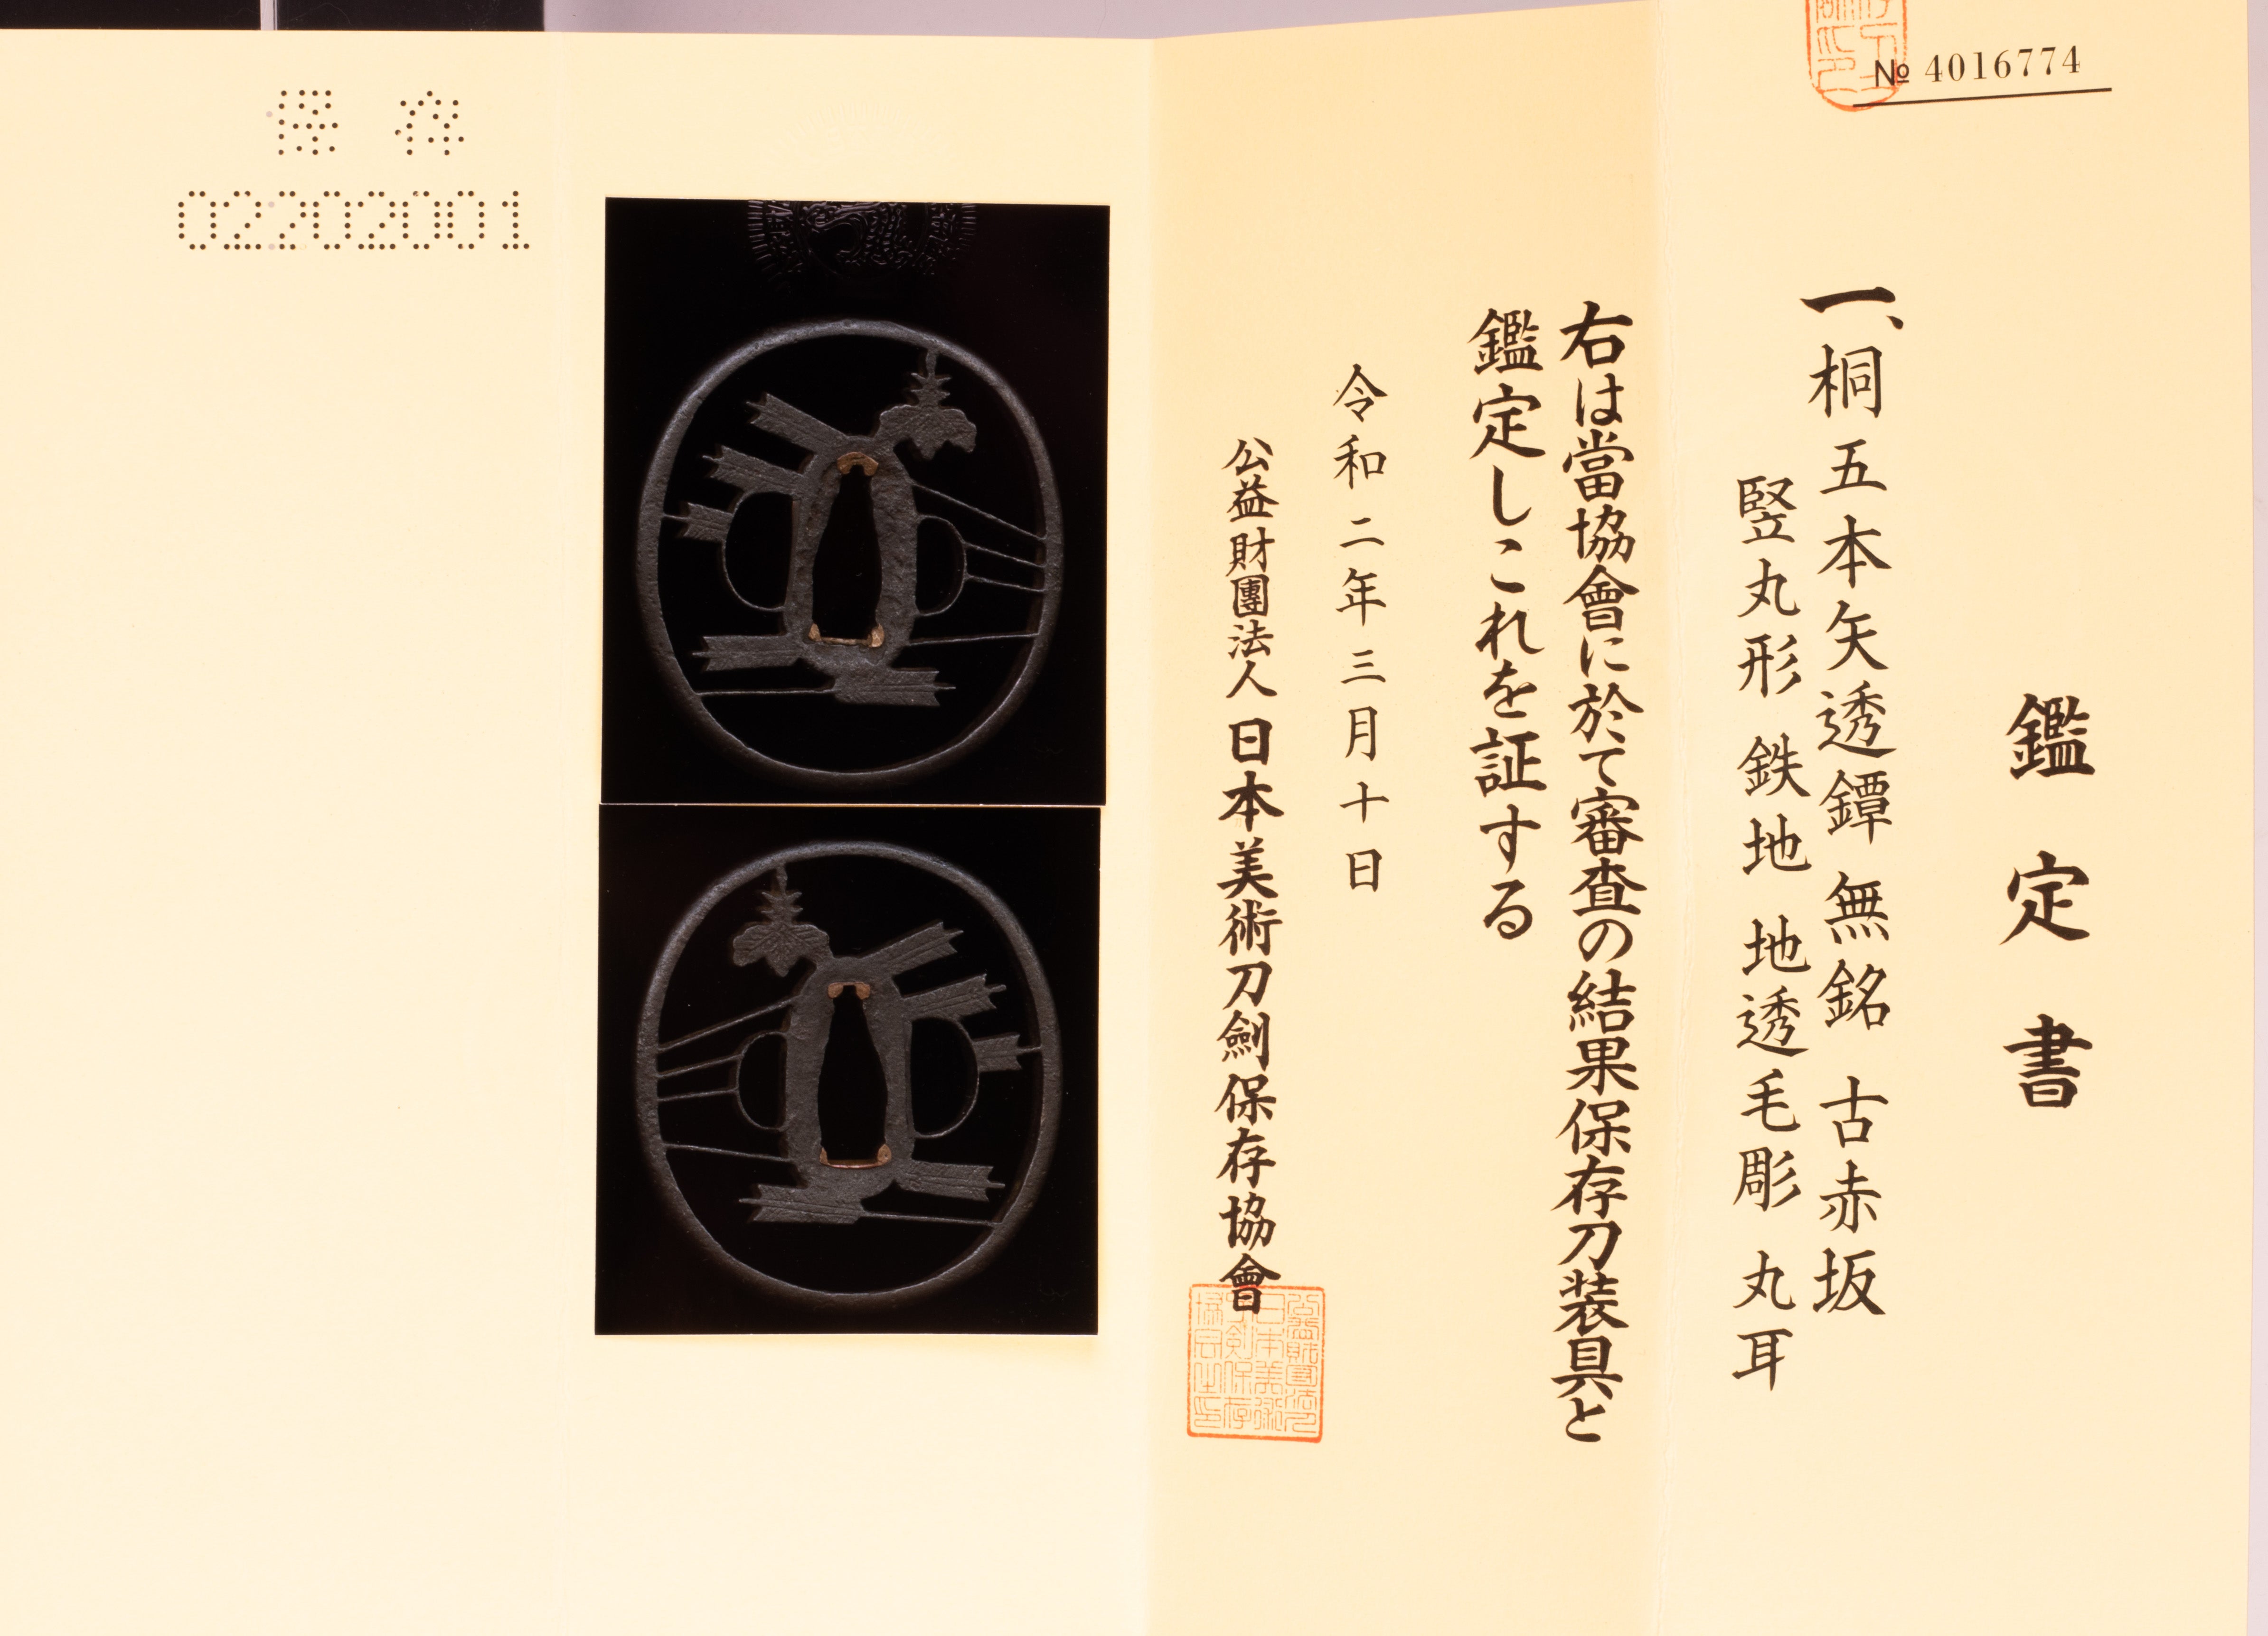 № 4016774
鑑定書
一、桐五本矢透鐔 無銘 古赤坂
竪丸形 鉄地 地透毛彫 丸耳
右は當協會に於て審査の結果保存刀装具と
鑑定しこれを証する
令和二年三月十日
公益財團法人 日本美術刀劍保存協會
保存
02202001